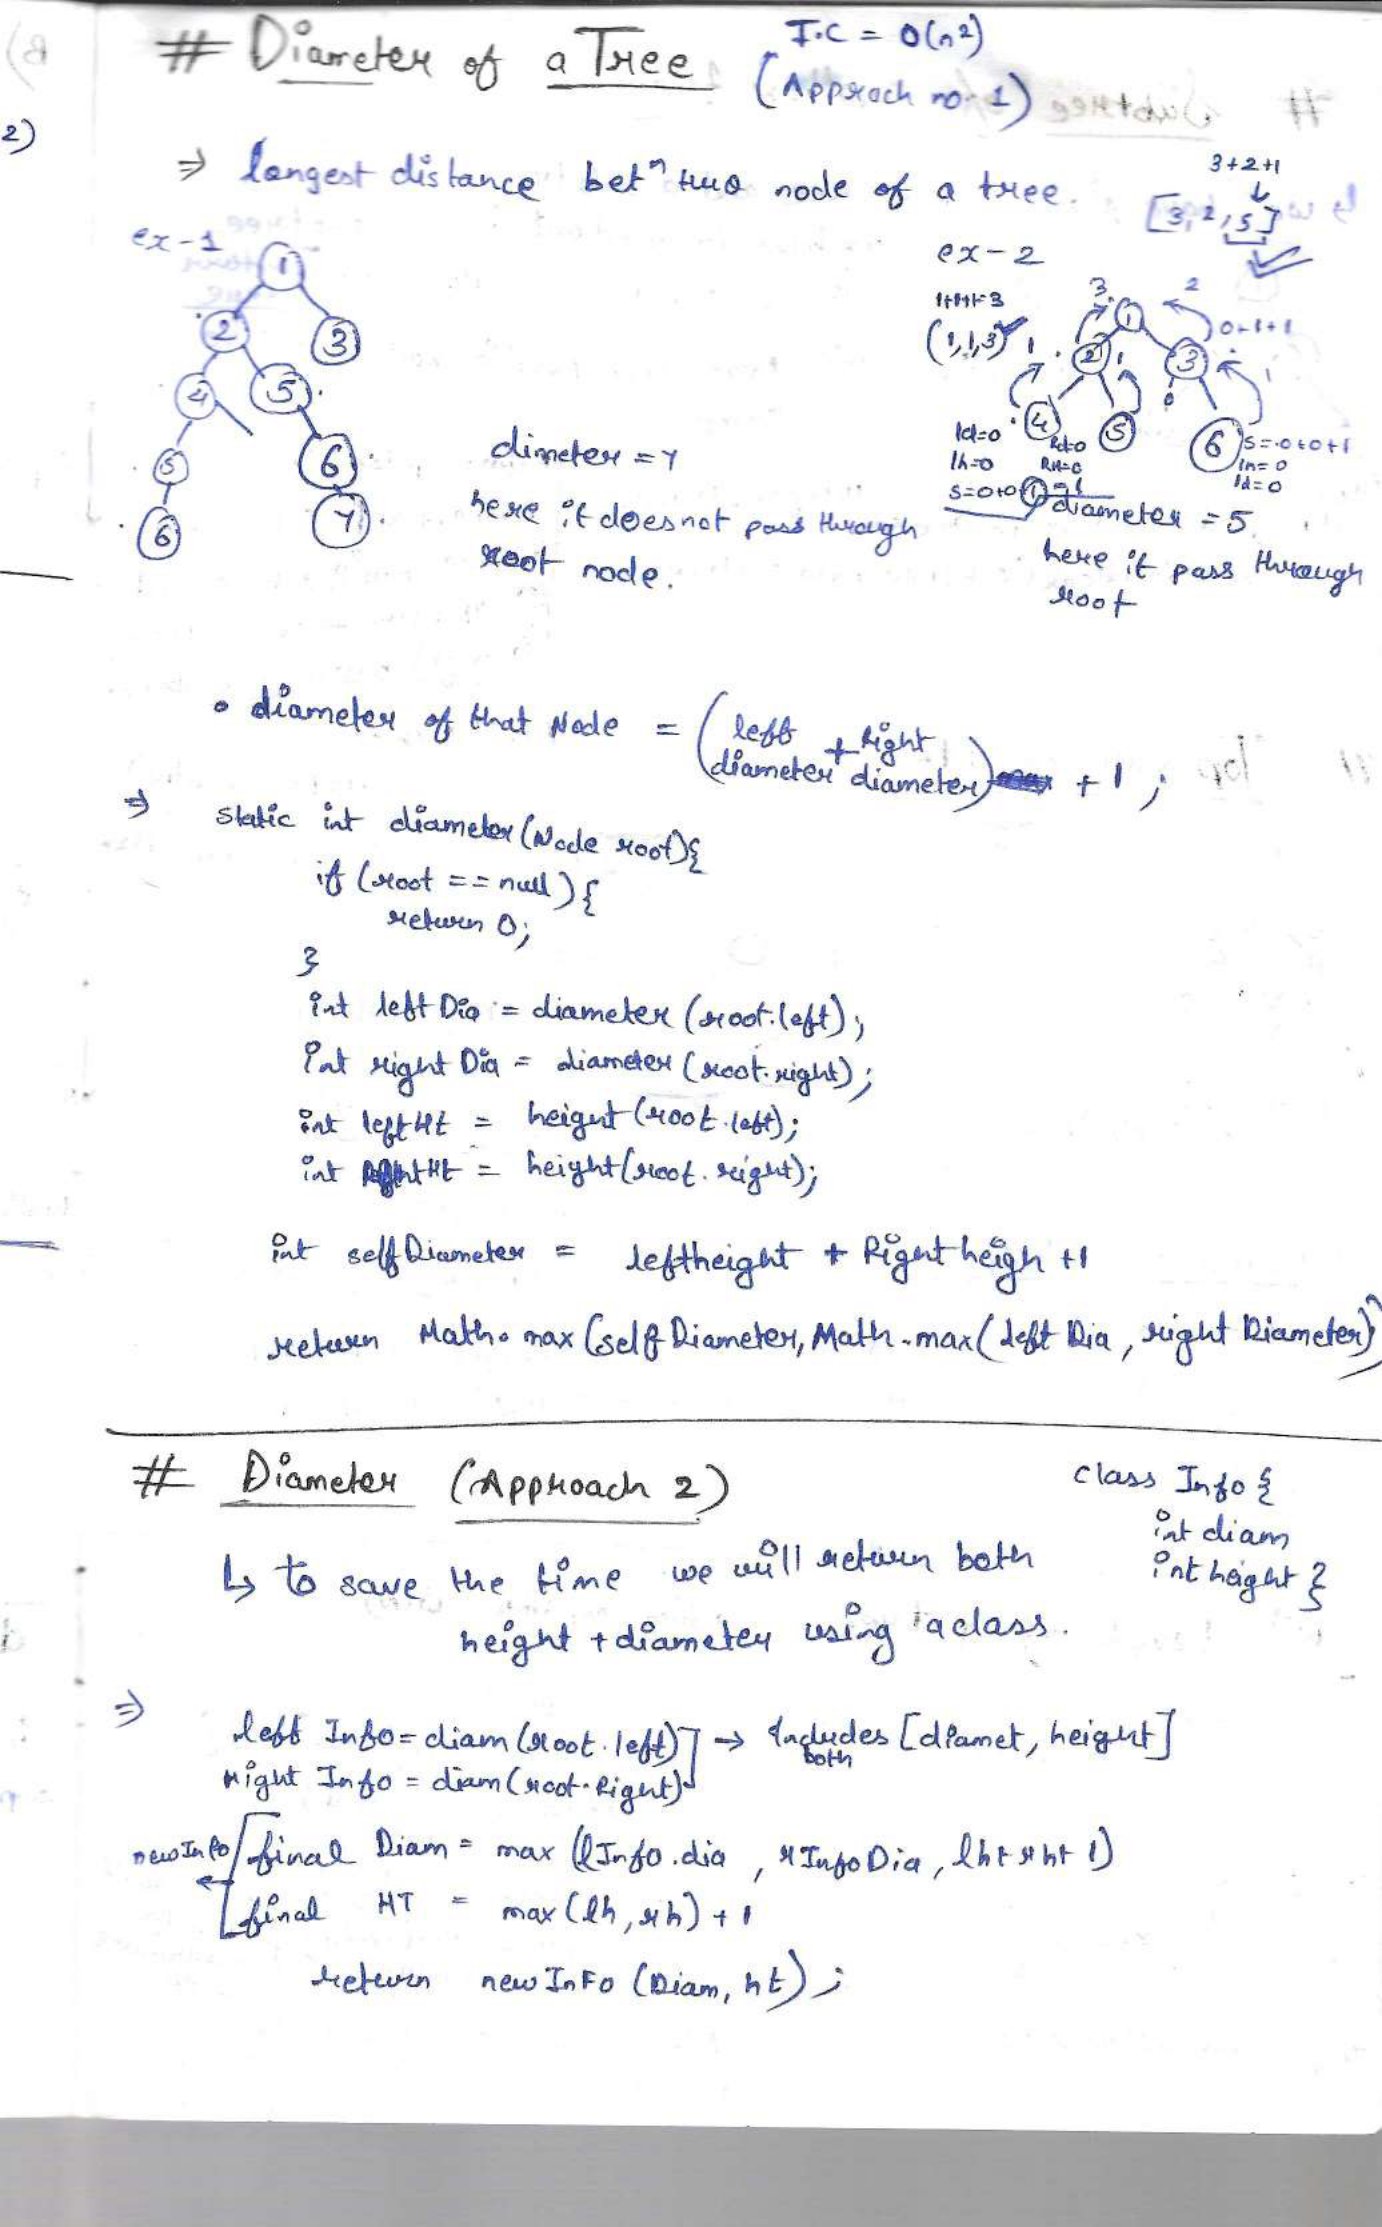 # Diameter of a Tree
T.C = O(n²)
(Approach no. 1)
2)
⇒ longest distance betⁿ two node of a tree.
3+2+1
[3, 2, 5]
ex-1
1
2
3
4
5
5
6
6
7
dimeter = 7
here it does not pass through
root node.
ex-2
1+1+1=3
(1,1,3)
3
2
1
0+1+1
1
2
1
3
0
4
5
6
ld=0
lh=0
Rd=0
RH=0
S=0+0+1=1
S=0+0+1
ln=0
ld=0
diameter = 5
here it pass through
root
• diameter of that Node = (left diameter + Right diameter) + 1 ;
⇒ static int diameter(Node root){
if (root == null) {
return 0;
}
int left Dia = diameter (root.left);
int right Dia = diameter (root.right);
int leftHt = height (root.left);
int RightHt = height(root.right);
int self Diameter = leftheight + Right heigh +1
return Math.max (self Diameter, Math.max( left Dia , right Diameter))
# Diameter (Approach 2)
class Info {
int diam
int height }
↳ to save the time we will return both
height + diameter using a class.
⇒ left Info = diam (root.left)] → Includes both [diamet, height]
right Info = diam (root.Right)
new Info
final Diam = max (lInfo.dia , rInfo Dia , lht+rht+1)
final HT = max (lh, rh) + 1
return new InFo (Diam, ht) ;